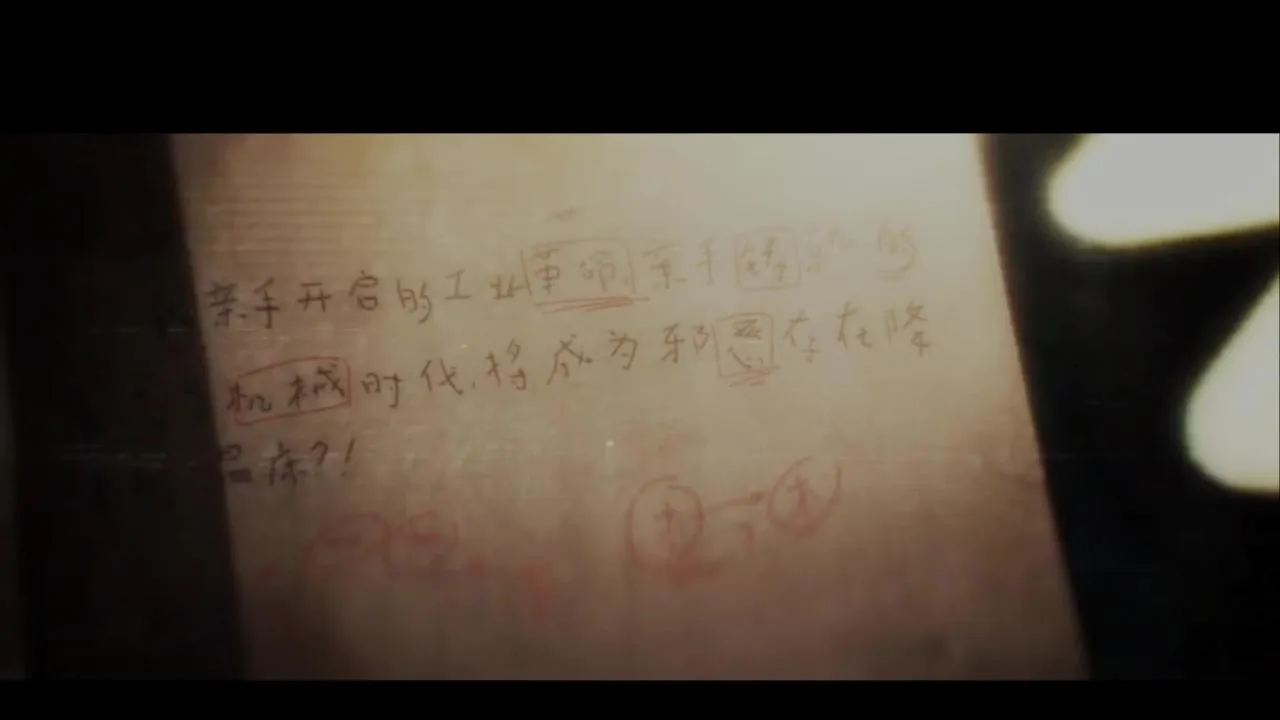 亲手开启的工业革命,亲手铸就的
机械时代,将成为邪恶存在降
温床?!